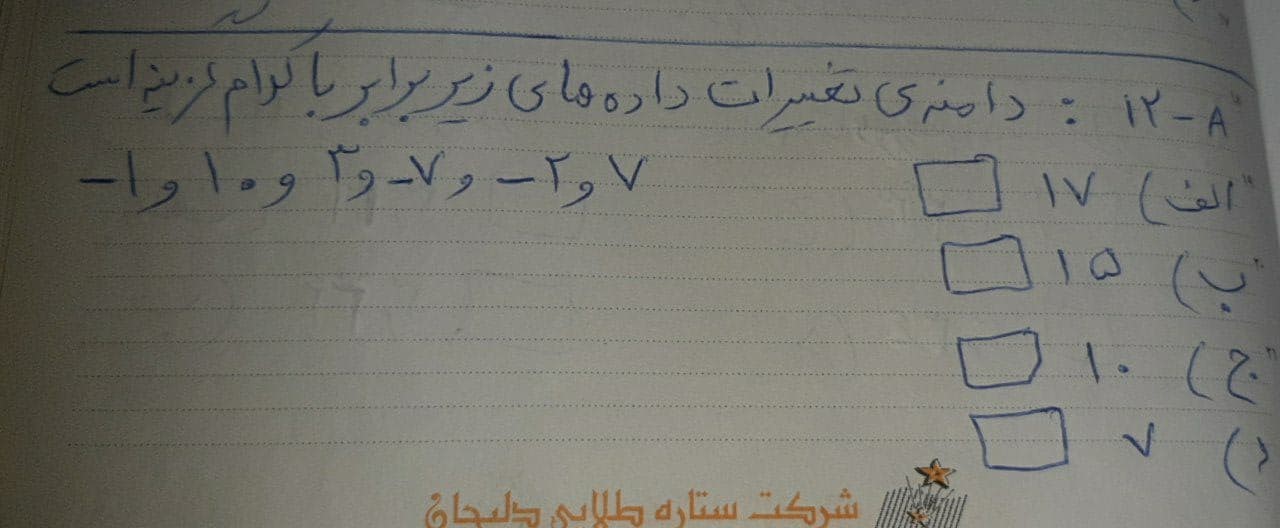 ۱۲-A : دامنه‌ی تغییرات داده های زیر برابر با کدام گزینه است
۷ و ۲- و ۷- و ۳ و ۱۰ و ۱-
الف) ۱۷
ب) ۱۵
ج) ۱۰
د) ۷
شرکت ستاره طلایی دلیجان